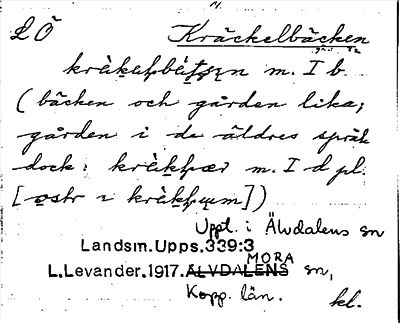 LÖ Kräckelbäcken
m. I b.
(bäcken och gården lika;
gården i de äldres språk
dock: m. I d pl.
Uppt. i Älvdalens sn
Landsm.Upps.339:3
MORA
L.Levander.1917. ÄLVDALENS sn,
Kopp. län.
kl.